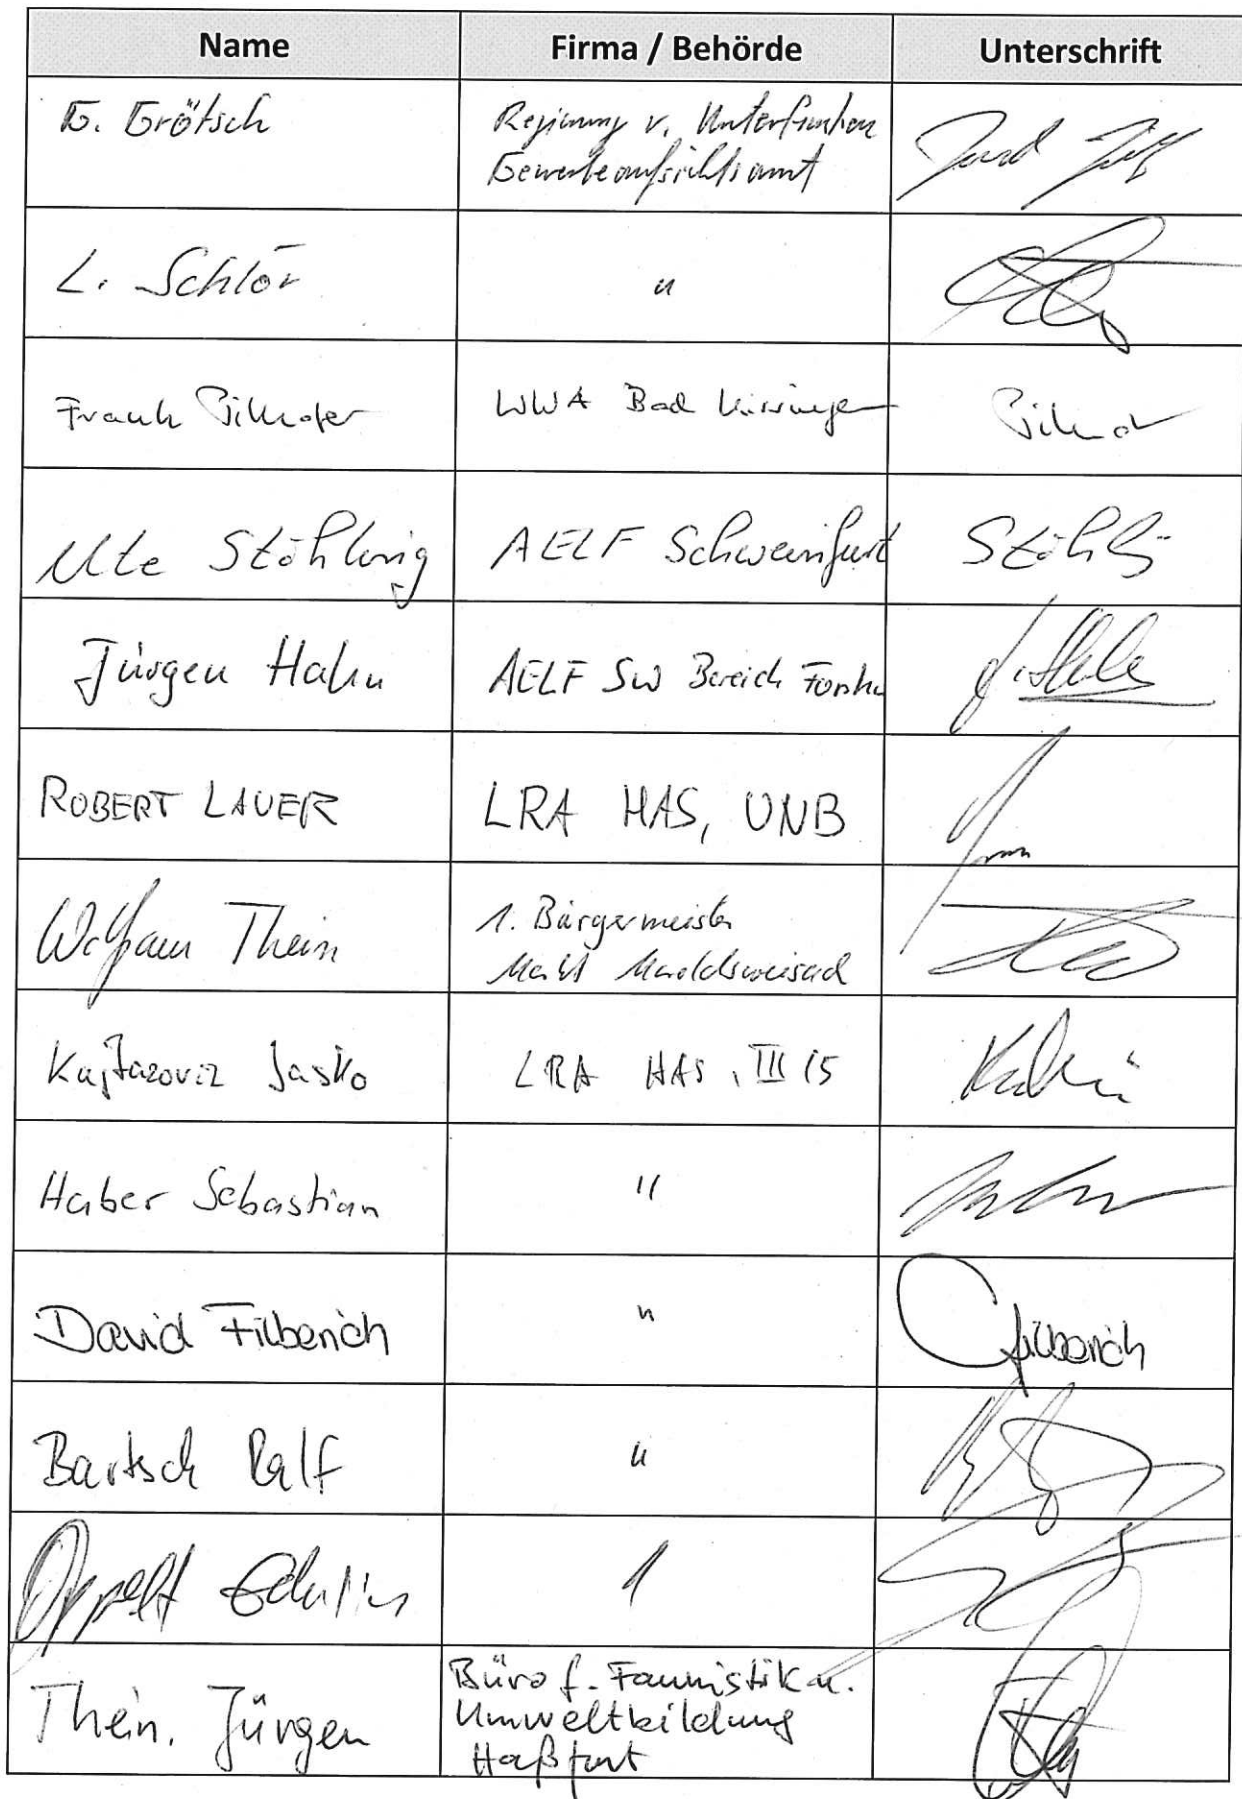 Name Firma / Behörde Unterschrift
G. Grötsch Regierung v. Unterfranken
Gewerbeaufsichtsamt
L. Schlör "
Frank Pilhofer WWA Bad Kissingen
Ute Stöhling AELF Schweinfurt Stöhlg
Jürgen Hahn AELF SW Bereich Forsten
ROBERT LAUER LRA HAS, UNB
Wolfram Thein 1. Bürgermeister
Markt Maroldsweisach
Kajtazovic Jasko LRA HAS, III 15
Haber Sebastian "
David Filberich " Filberich
Bartsch Ralf "
Oppelt
Thein. Jürgen Büro f. Faunistik u.
Umweltbildung
Haßfurt